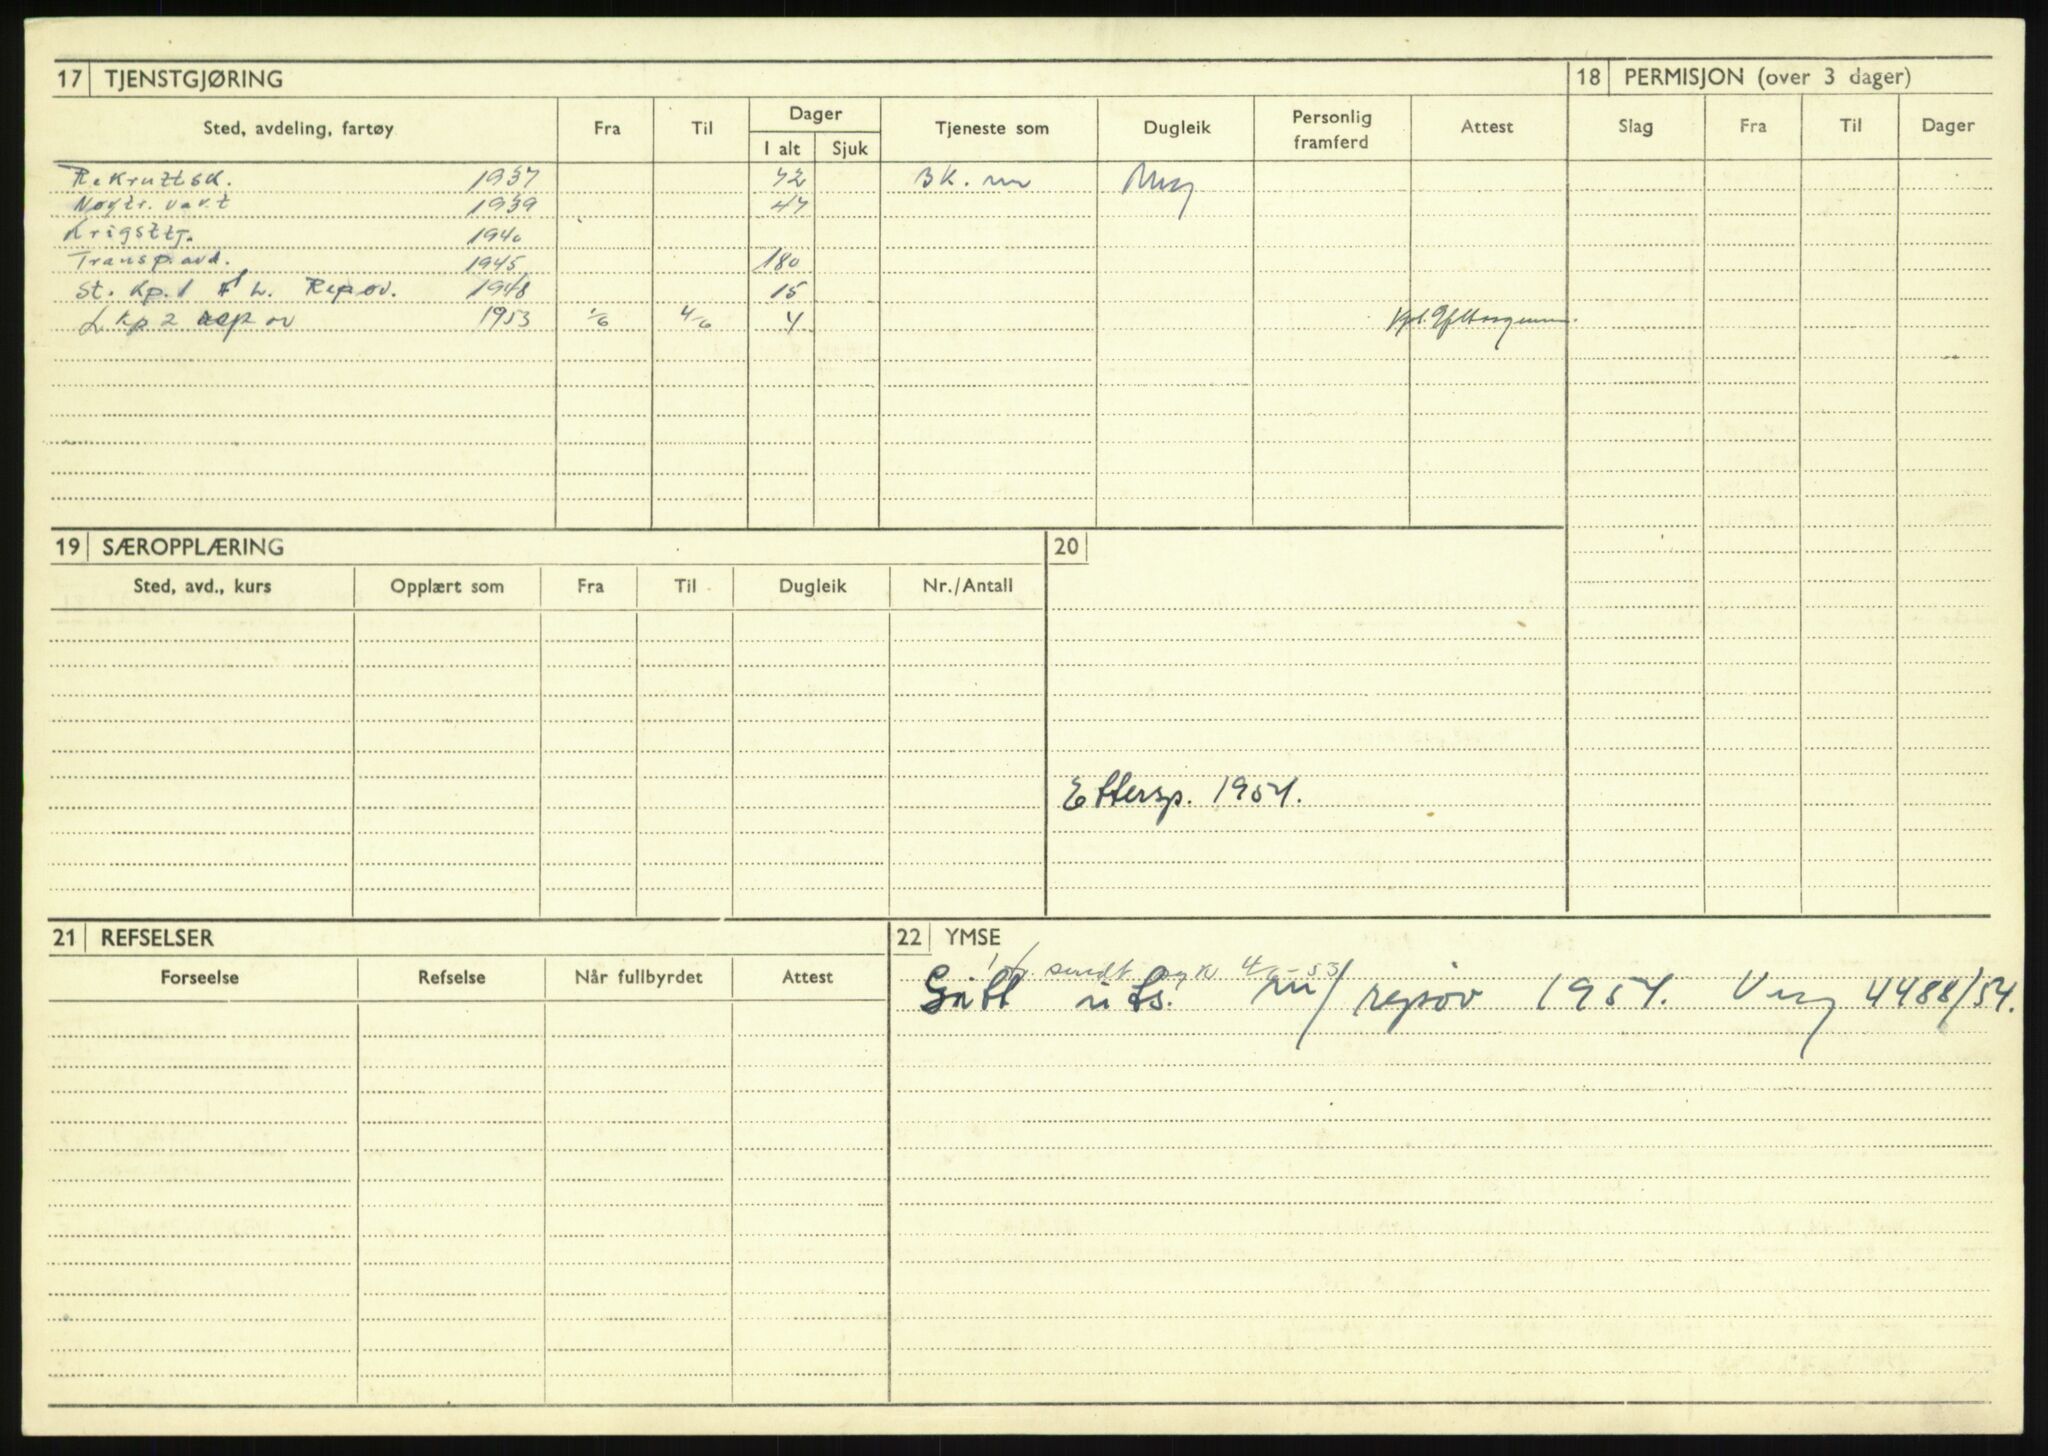 17 TJENSTGJØRING 18 PERMISJON (over 3 dager)
Sted, avdeling, fartøy Fra Til Dager Tjeneste som Dugleik Personlig framferd Attest Slag Fra Til Dager
I alt Sjuk
Rekruttsk. 1937 72 BK. m
Nøytr. vakt 1939 47
Krigsttj. 1940
Transp. avd. 1945 180
St. Kp. 1 L. Rep øv. 1948 15
L kp 2 rep øv 1953 1/6 4/6 4 Kpt.
19 SÆROPPLÆRING 20
Sted, avd., kurs Opplært som Fra Til Dugleik Nr./Antall
Ettersp. 1954.
21 REFSELSER 22 YMSE
Forseelse Refselse Når fullbyrdet Attest
sendt syk 4/6-53
Gitt uts. m/ repøv 1954. Verg 4488/54.